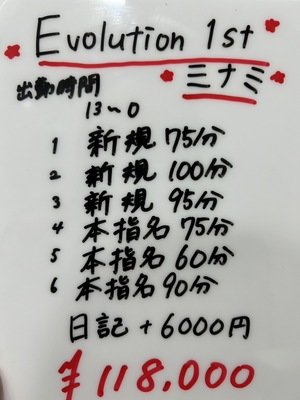 Evolution 1st
ミナミ
出勤時間
13~0
1 新規 75分
2 新規 100分
3 新規 95分
4 本指名 75分
5 本指名 60分
6 本指名 90分
日記 + 6000円
¥118,000